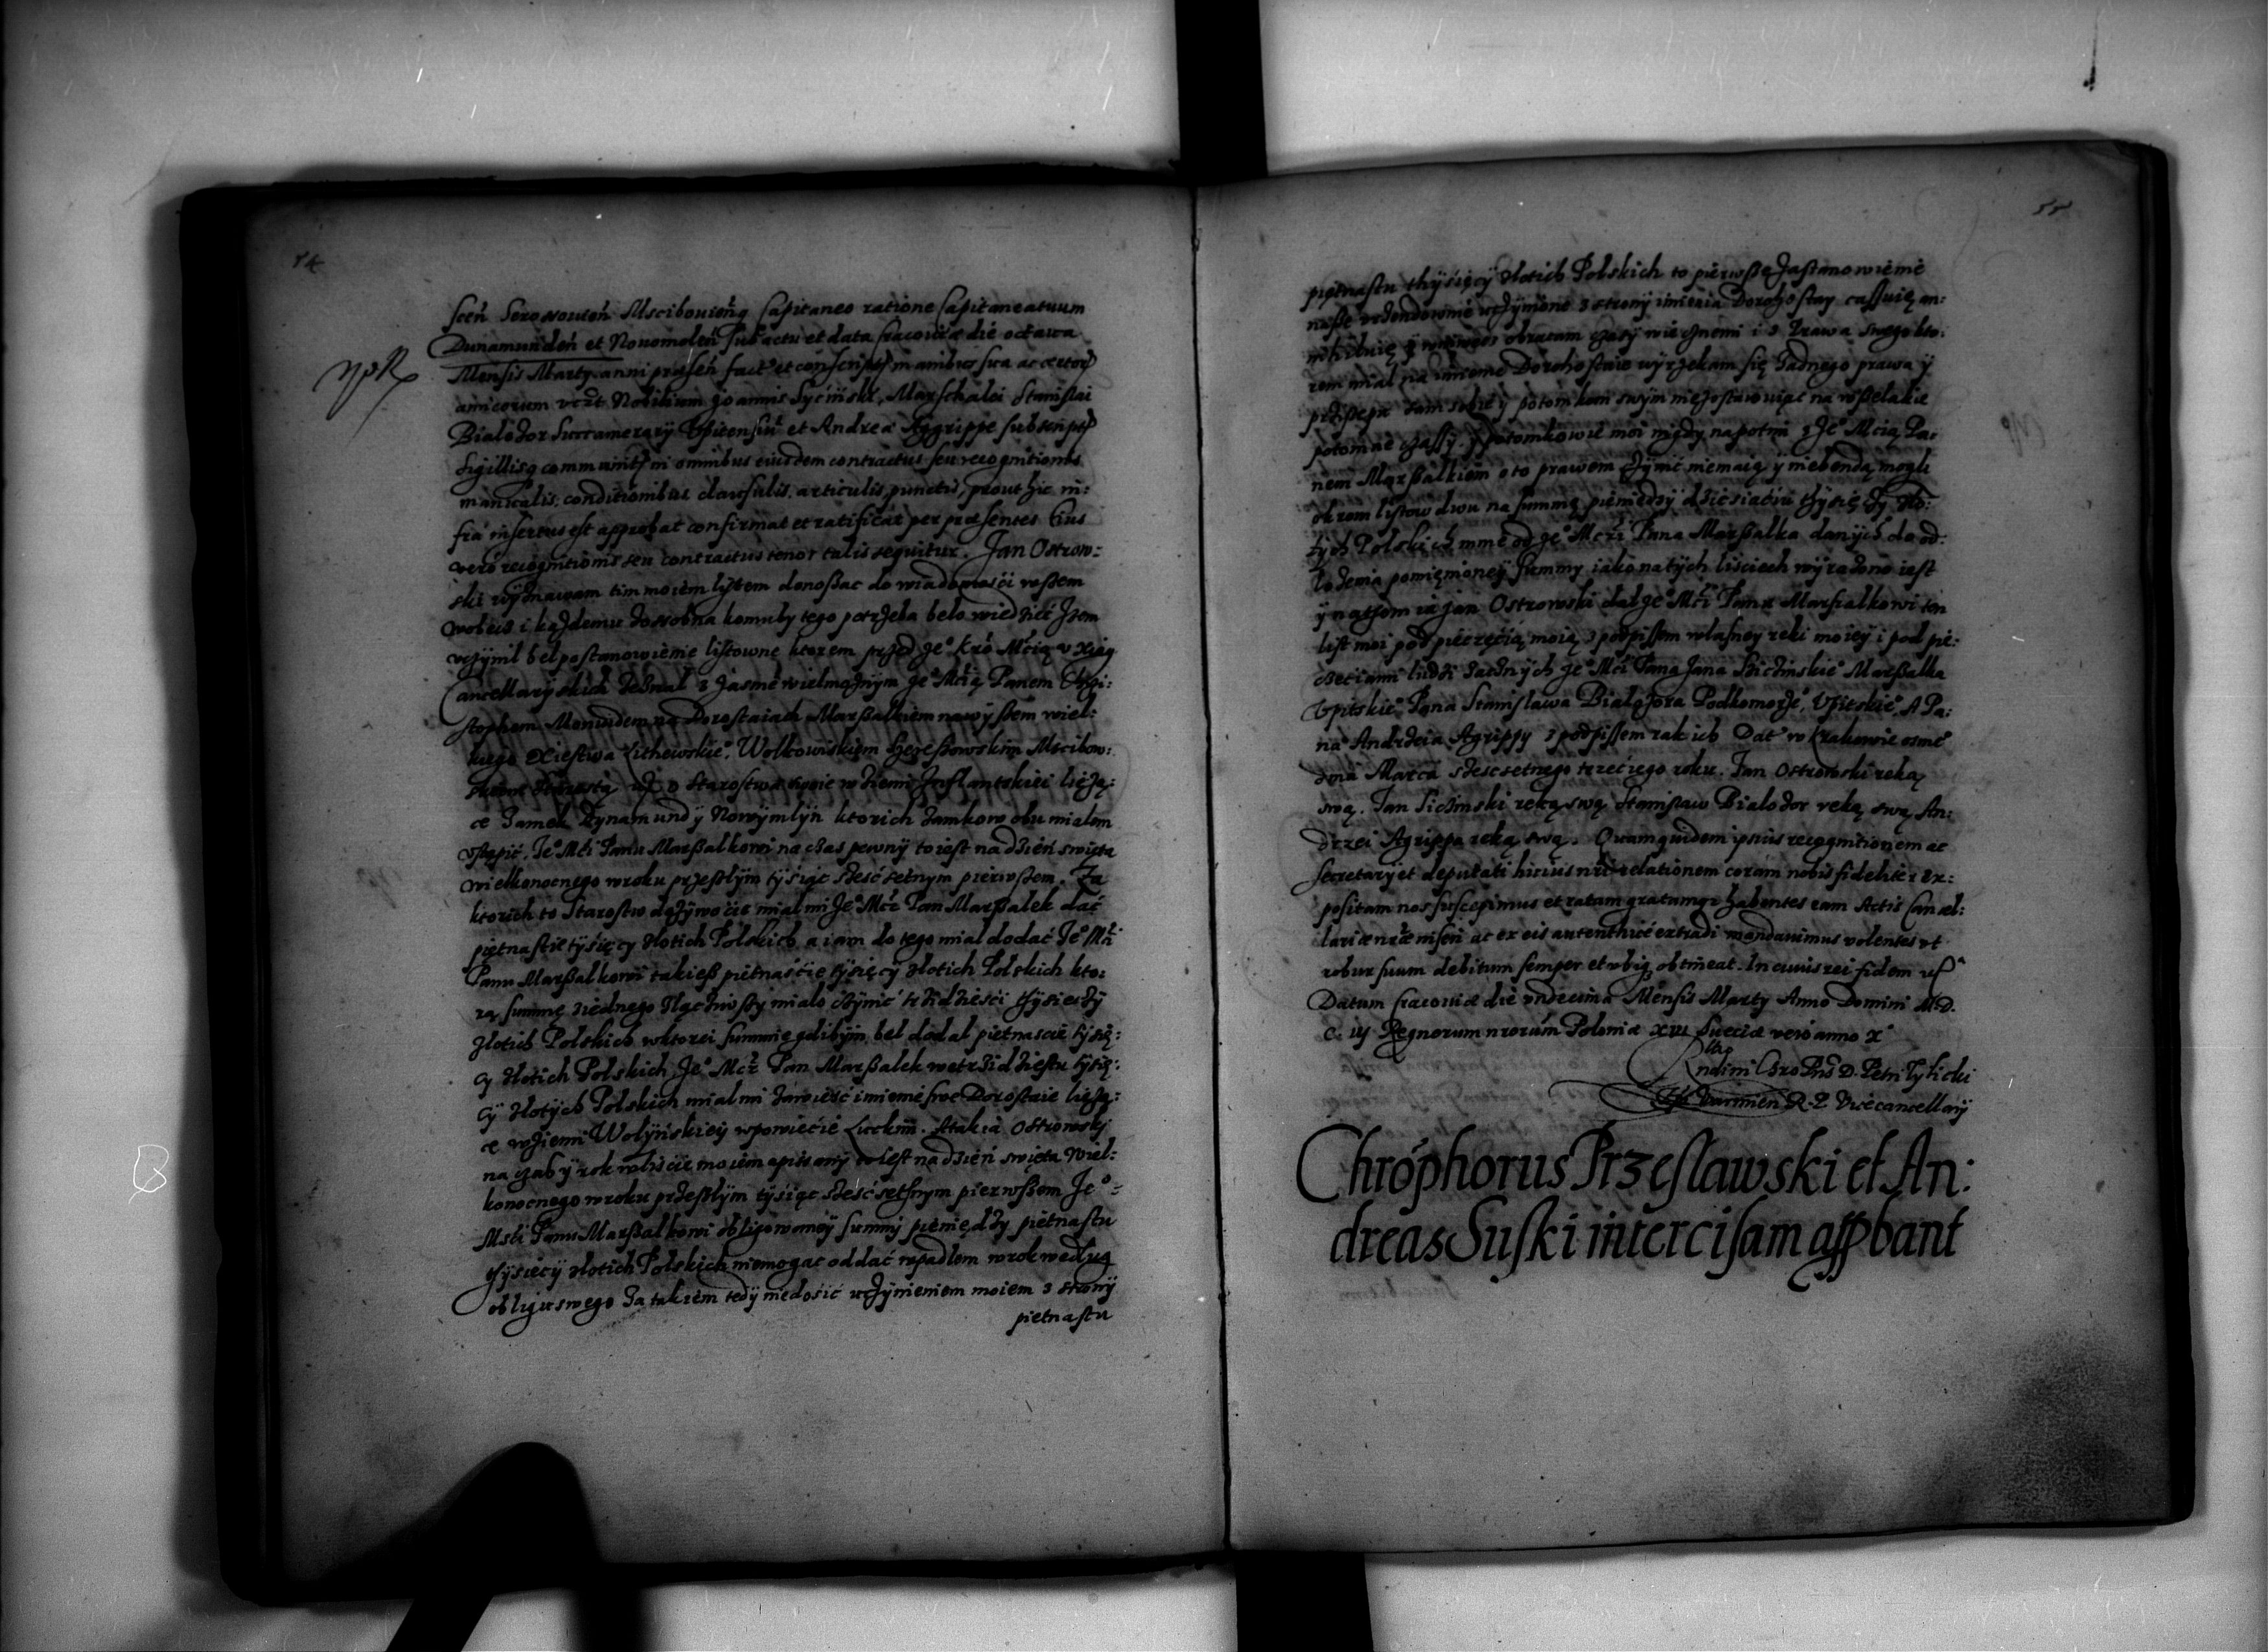 54
scen̄ Serowoien̄ Mscibouien̄q Capitaneo ratione Capitaneatuum
Dunamunden̄ et Nouomolen̄ sub actu et data Cracoviæ die octawa
Mensis Marty anni præsen̄ fact et conscript manibus sua ac
amicorum Nobilium Joannis Syciński, Marschalci Stanislai
Bialozor Succamerary Vpitensiu et Andreæ Aggrippe subscript
sigillisq communit in omnibus eiusdem contractus seu recognitionis
conditionibus clausulis, articulis, punctis, prout hic in:
fra insertus est approbat confirmat et ratificat per præsentes Cuius
vero recognitionis seu contractus tenor talis sequitur. Jan Ostrow:
ski wyznawam tim moiem lystem donoßac do wiadomości wßem
wobecz i każdemu zosobna komuby tego potrzeba belo wiedzieć Jzem
vczynil bel postanowienie listowne ktorem przed Je° Kro Mścią v Xiąg
Cancellaryiskich zeznal z Jasnie wielmożnym Je° Mścią Panem Chri:
stophem Monwidem na Dorostaiach Marßalkiem nawyßem wiel:
kiego Xiestwa Lithewskie°, Wolkowiskiem Mscibow:
skiem Starostą iż o Starostwa swoie w ziemi Jnflantskiei leżą:
ce Zamek Dynamund y Nowymlyn ktorich zamkow obu mialem
vstąpić. Je° Mści Panu Marßalkowi na czas pewny to iest na dzień swięta
wielkonocnego w roku przeßlym tysiąc sześćsetnym pierwßem. Za
ktorich to Starostw dożywocie mial mi Je° Mść Pan Marßalek dać
piętnaście tysięcy zlotich Polskich, a iam do tego mial dodać Je° Mści
Panu Marßalkowi takieß piętnaście tysięcy zlotich Polskich kto:
rą summę ziednego zlączywßy mialo czynić trzidzieści thysieczy
zlotich Polskich w ktorei summie gdibym bel dodal pietnascie tysię:
cy zlotich Polskich Je° Mść Pan Marßalek we trzidziestu tysię:
cy zlotych Polskich mial mi zawieść imienie swe Dorostaie leżą:
ce w ziemi Wolyńskiey w powiecie Luckim. A tak ia Ostrowsky
na czas y rok w liście moiem opisany to iest na dzień swięta Wiel:
konocnego w roku przeßlym tysiąc sześćsethnym pierwßem Je°=
Mści Panu Marßalkowi obligowaney summy pieniędzy piętnastu
thysiecy zlotich Polskich niemogac oddać wpadlem w rok według
obligu swego Za takiem tedy niedosić vczynieniem moiem z strony
pietnastu
55
piętnastu thysięcy zlotich Polskich to pierwße zastanowienie
naße vczynione z strony imienia Dorohostay cassuię an:
nihiluię y wniwecz obracam czasy wiecznemi i z Prawa swego kto:
rem mial na imienie Dorohostaie wyrzekam się żadnego prawa y
przistepu sam sobie y potomkom swym niezostawuiąc na wßelakie
potomne czaßy. y potomkowie moi nigdy napotim z Je° Mścią Pa:
nem Marßalkiem o to prawem czynić niemaią y niebendą mogli
okrom listow dwu na summę pieniedzy dziesiatiu thysięczy zlo:
tych Polskich mnie od Je° Mści Pana Marßalka danych do od:
lożenia pomienioney summy iako na tych liściech wyrażono iest
y na them ia Jan Ostrowski dal Je° Mści Panu Marßalkowi ten
list moi pod pieczęcią moią z podpißem wlasney ręki moiey i pod pie:
czeciami ludzi zacznych Je° Mści Pana Jana Sicinskie° Marßalka
Vpitskie° Pana Stanislawa Bialozora Podkomorze°, Vpitskie°. A Pa:
na Andrzeia Agrippy z podpißem rak ich Dat w Krakowie osme°
dnia Marca sześćsetnego trzeciego roku. Jan Ostrowski reką
swą. Jan Sicinski reką swą Stanislaw Bialozor reką swą, An:
drzei Agrippa reką swą. Quam quidem ipsius recognitionem ac
Secretary et deputati huius nri relationem coram nobis fideliter ex:
positam nos suscepimus et ratam gratamque habentes eam Actis Cancel:
lariæ nræ inseri ac ex eis autenthice extradi mandauimus volentes vt
robur suum debitum semper et vbiq obtineat. In cuius rei fidem
Datum Cracoviæ die vndecima Mensis Marty Anno Domini M.D.
C. iij Regnorum nrorum Poloniæ xvi Sueciæ vero anno x°
Rndmi Chro Pris D. Petri Tylicki
Epi Varmien R. P. Vicecancellarij
Chrophorus Przeslawski et An:
dreas Suski intercisam appbant